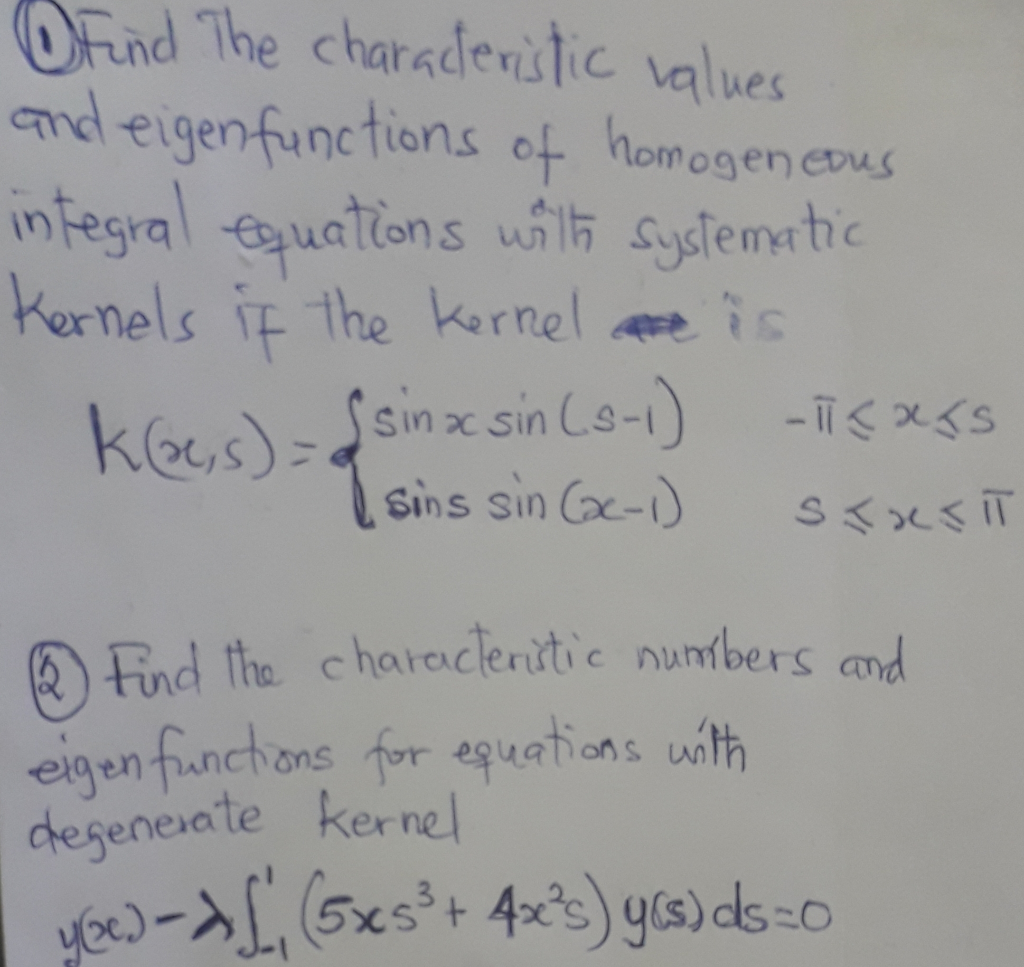 ① Find The characteristic values
and eigenfunctions of homogeneous
integral equations with systematic
Kernels if the kernel is
K(x,s) = { sin x sin (s-1) -π ≤ x ≤ s
sin s sin (x-1) s ≤ x ≤ π
② Find the characteristic numbers and
eigen functions for equations with
degenerate kernel
y(x) - λ ∫₋₁¹ (5xs³ + 4x²s) y(s) ds = 0